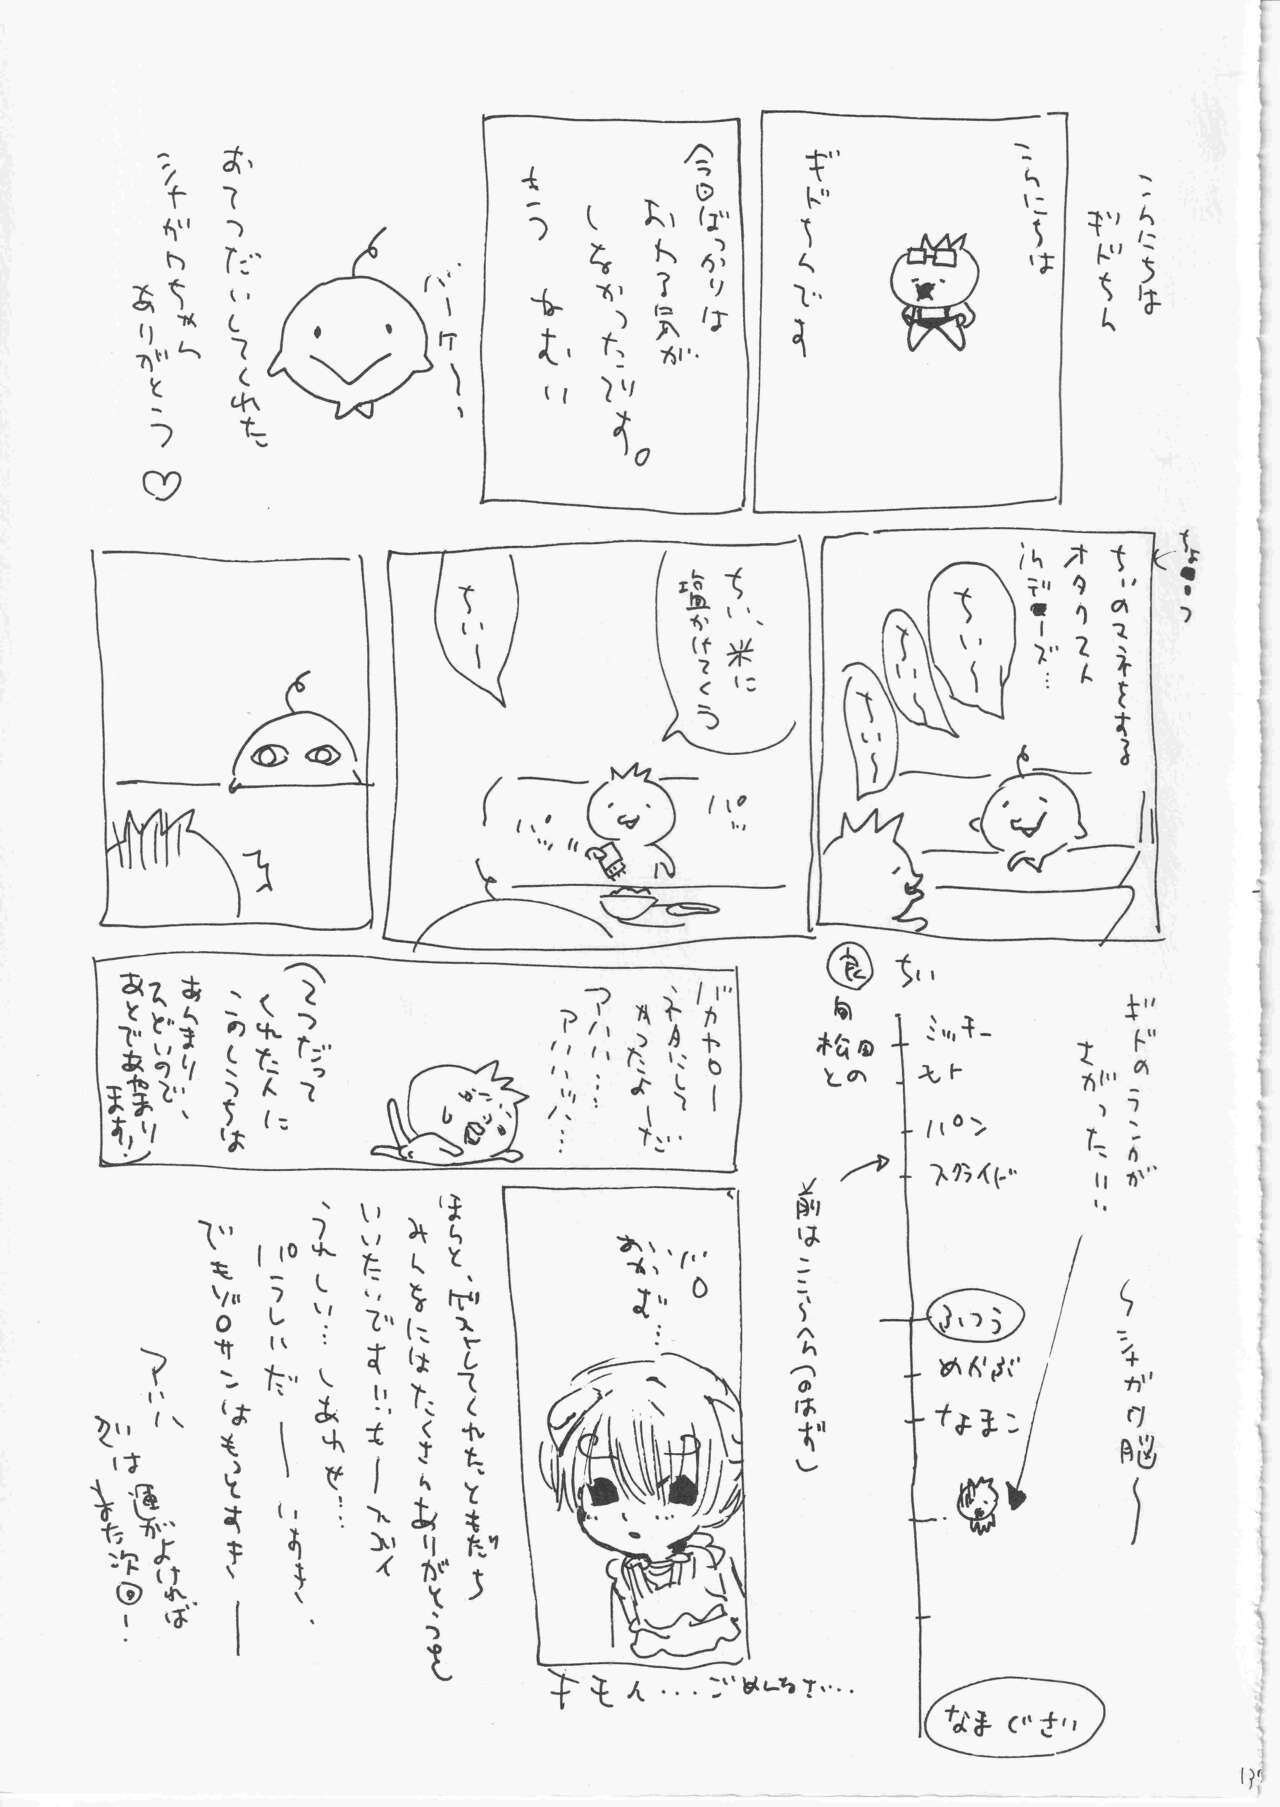 こんにちは
ギドちん
こんにちは
ギドちんです
今回ばっかりは
おわる気が
しなかったです。
さつ ねむい
バーケ〜、
おてつだいしてくれた
シナガワちゃん
ありがとう♡
ちょっ
ちぃのマネをする
オタクスト
ちぃ〜
ちぃ〜
ちぃ〜
ちぃ、米に
塩かけてくう
パッ
ちぃ〜
ギドのランクが
さがった!!!
〜シナガワ脳〜
良
旬
松田
との
ちぃ
ミッキー
モト
パン
スクライド
前はここらへん(のはず)
ふつう
めかぶ
なまこ
なまぐさい
バカヤロー
ネタにして
やったよーだ
アハハ…
アハハハハ…
(てつだって
くれた人に
このしうちは
あんまり
ひどいので、
あとであやまり
ます)
バロ
おかず…
キモく...ごめんなさい...
ほんと、ポストしてくれたともだち
みんなにはたくさんありがとうを
いいたいです!!
うれしい…しあわせ…
パラしいだ――
でもゾロサンはもっとすき――
アハハ
では運がよければ
また次回ー
137